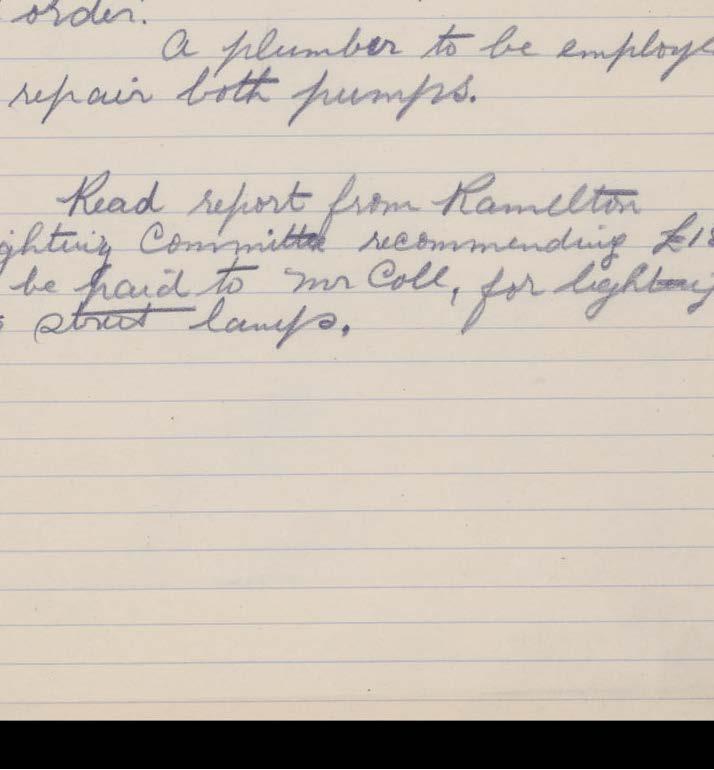 order.
A plumber to be employe
repair both pumps.
Read report from Ramelton
ghting Committee recommending £18
be paid to Mr Coll, for lighting
street lamps.